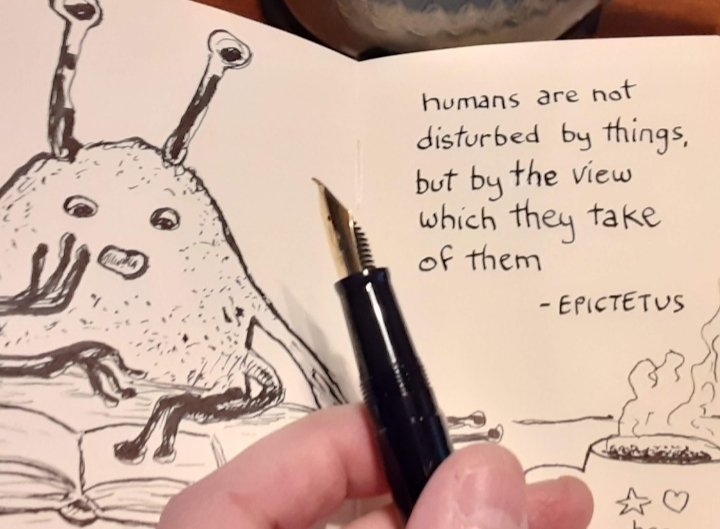 humans are not
disturbed by things,
but by the view
which they take
of them
-EPICTETUS